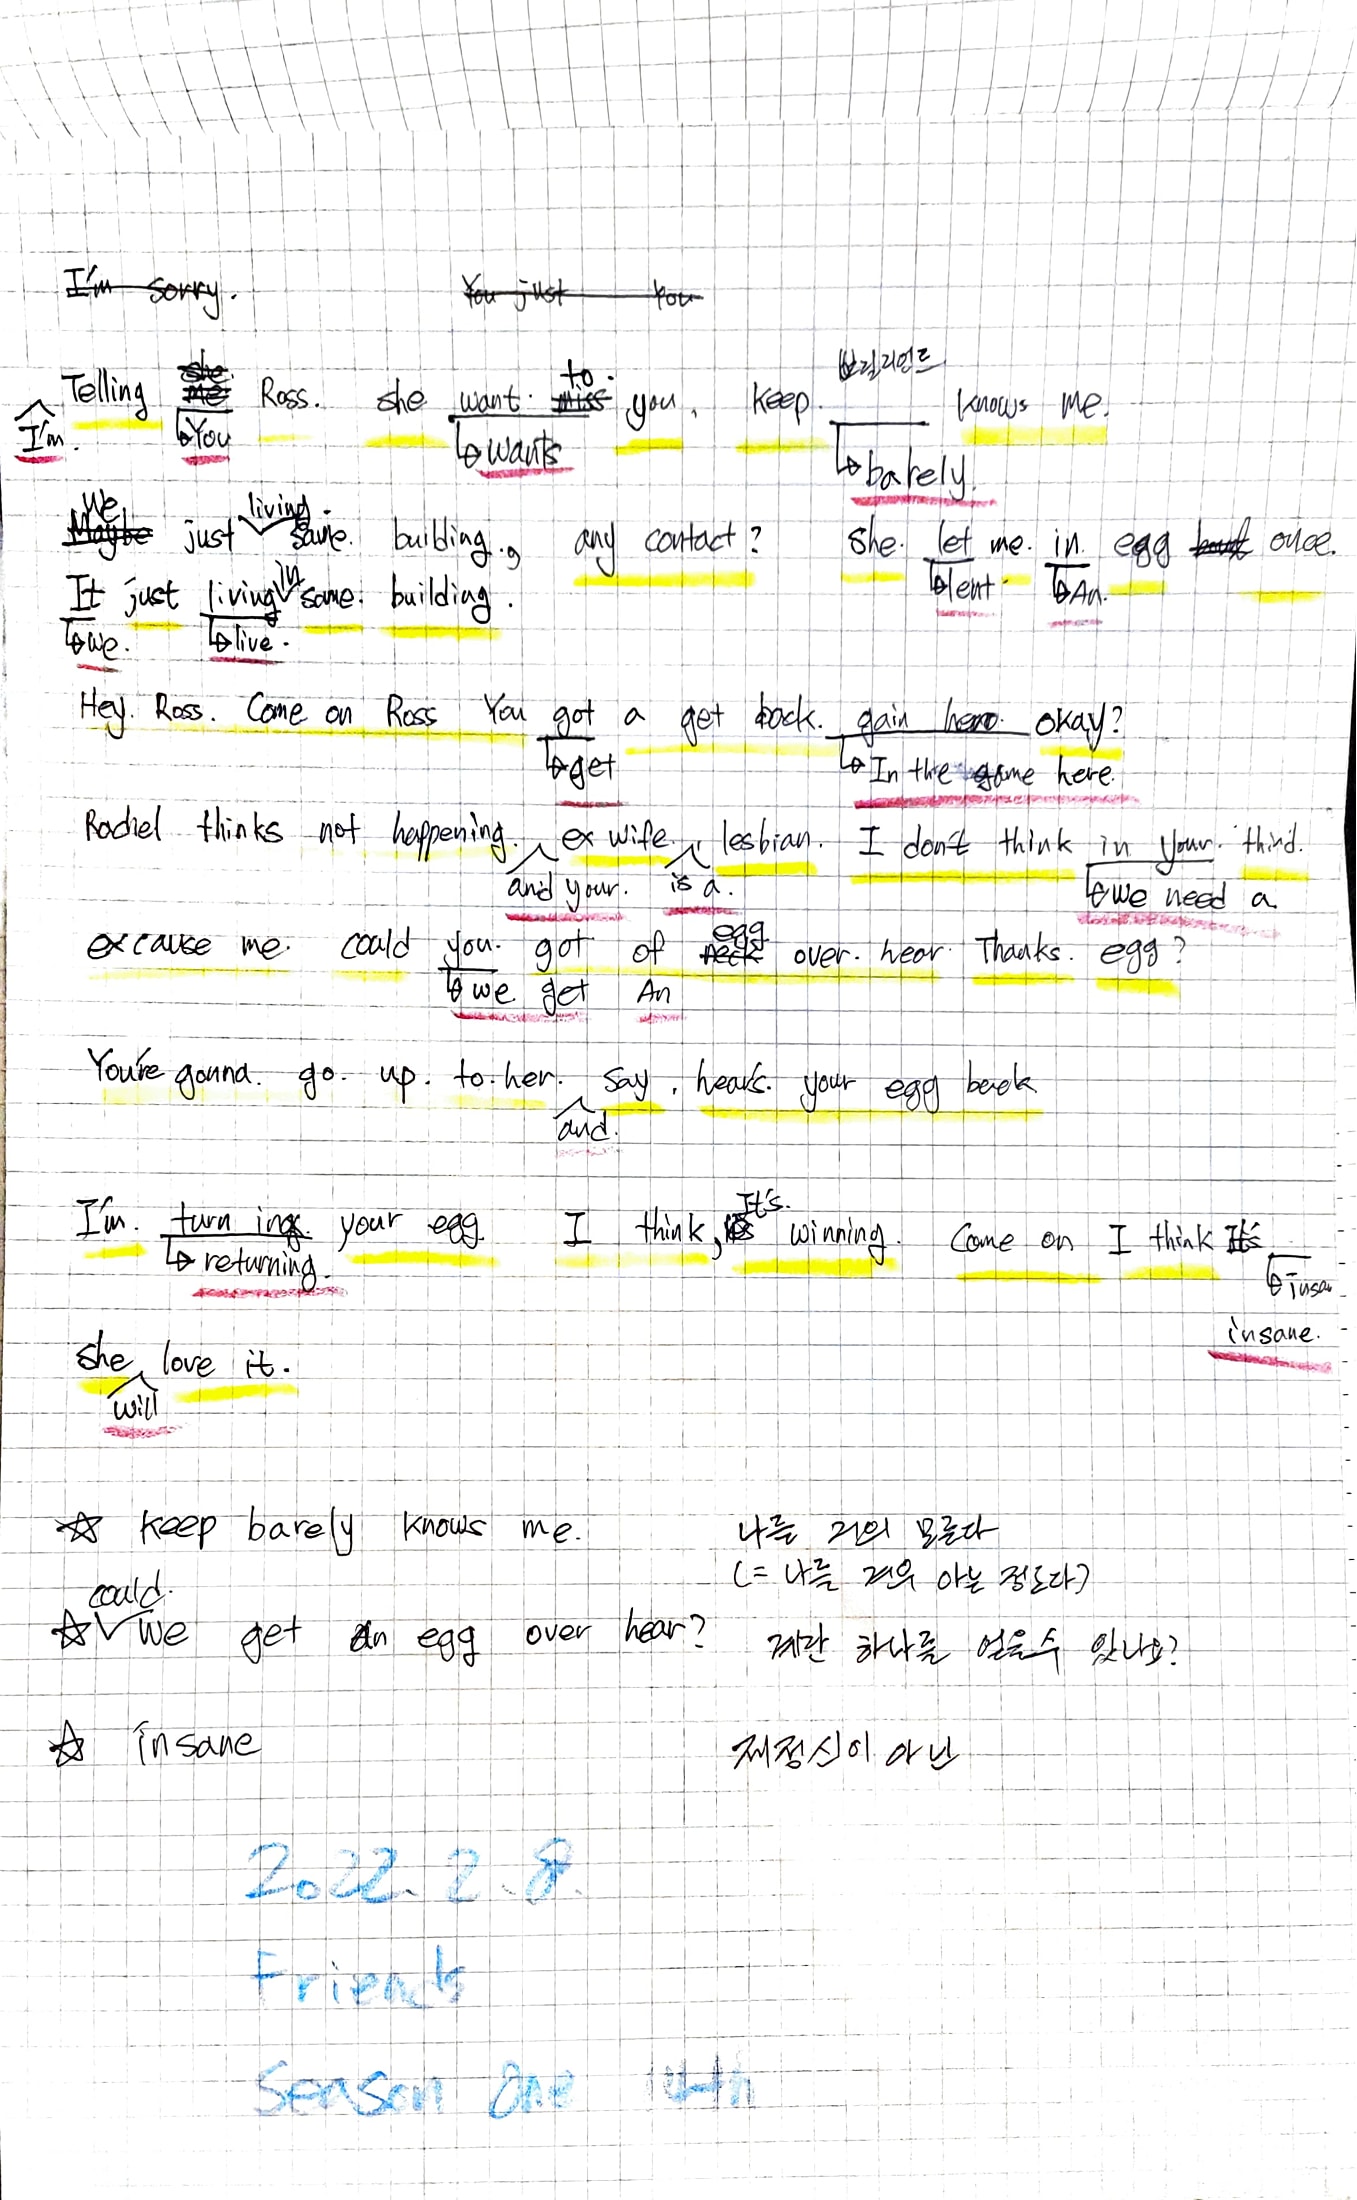 I'm sorry. You just You
브릴리언트
she to.
Telling me Ross. she want. miss you, keep. knows me.
I'm. You wants barely.
We living.
Maybe just same. building., any contact? she. let me. in egg once.
in lent An.
It just living same. building.
we. live.
Hey. Ross. Come on Ross You got a get back. gain hero. okay?
get In the game here.
Rachel thinks not happening. ex wife. lesbian. I don't think in your. third.
and your. is a. we need a.
egg
excause me. could you. got of neck over. hear. Thanks. egg?
we get An
You're gonna. go. up. to. her. say. hear's. your egg back
and.
It's.
I'm. turn ing. your egg. I think, winning. Come on I think It's
returning. insa
insane.
she love it.
will
☆ keep barely knows me. 나를 거의 모른다
(= 나를 겨우 아는 정도다)
could.
☆ We get an egg over hear? 계란 하나를 얻을 수 있나요?
☆ insane 제정신이 아닌
2022. 2. 8.
Friends
Season One 14th